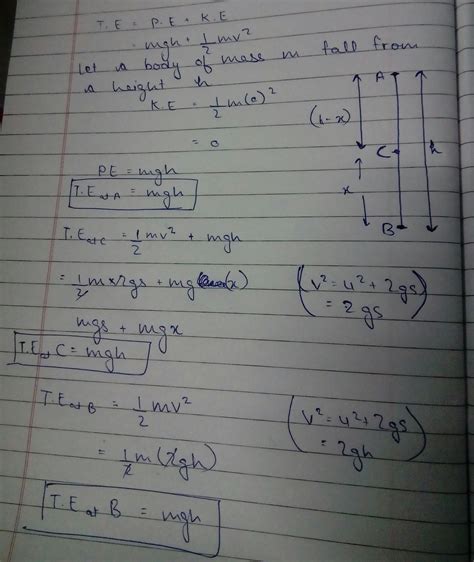 T.E = P.E + K.E
= mgh + 1/2 mv²
Let a body of mass m fall from
a height h
K.E = 1/2 m(0)²
= 0
PE = mgh
T.E at A = mgh
A
(h-x)
C
x
B
h
T.E at C = 1/2 mv² + mgh
= 1/2 m × 2gs + mg(x)
(v² = u² + 2gs
= 2gs)
mgs + mgx
T.E at C = mgh
T.E at B = 1/2 mv²
(v² = u² + 2gs
= 2gh)
= 1/2 m(2gh)
T.E at B = mgh